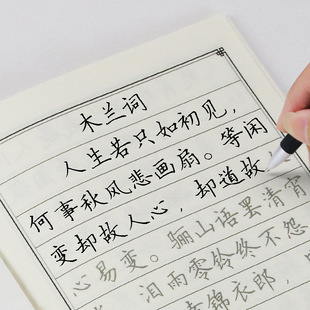 木兰词
人生若只如初见，
何事秋风悲画扇。等闲
变却故人心，却道故
心易变。骊山语罢清宵
泪雨零铃终不怨
幸锦衣郎，